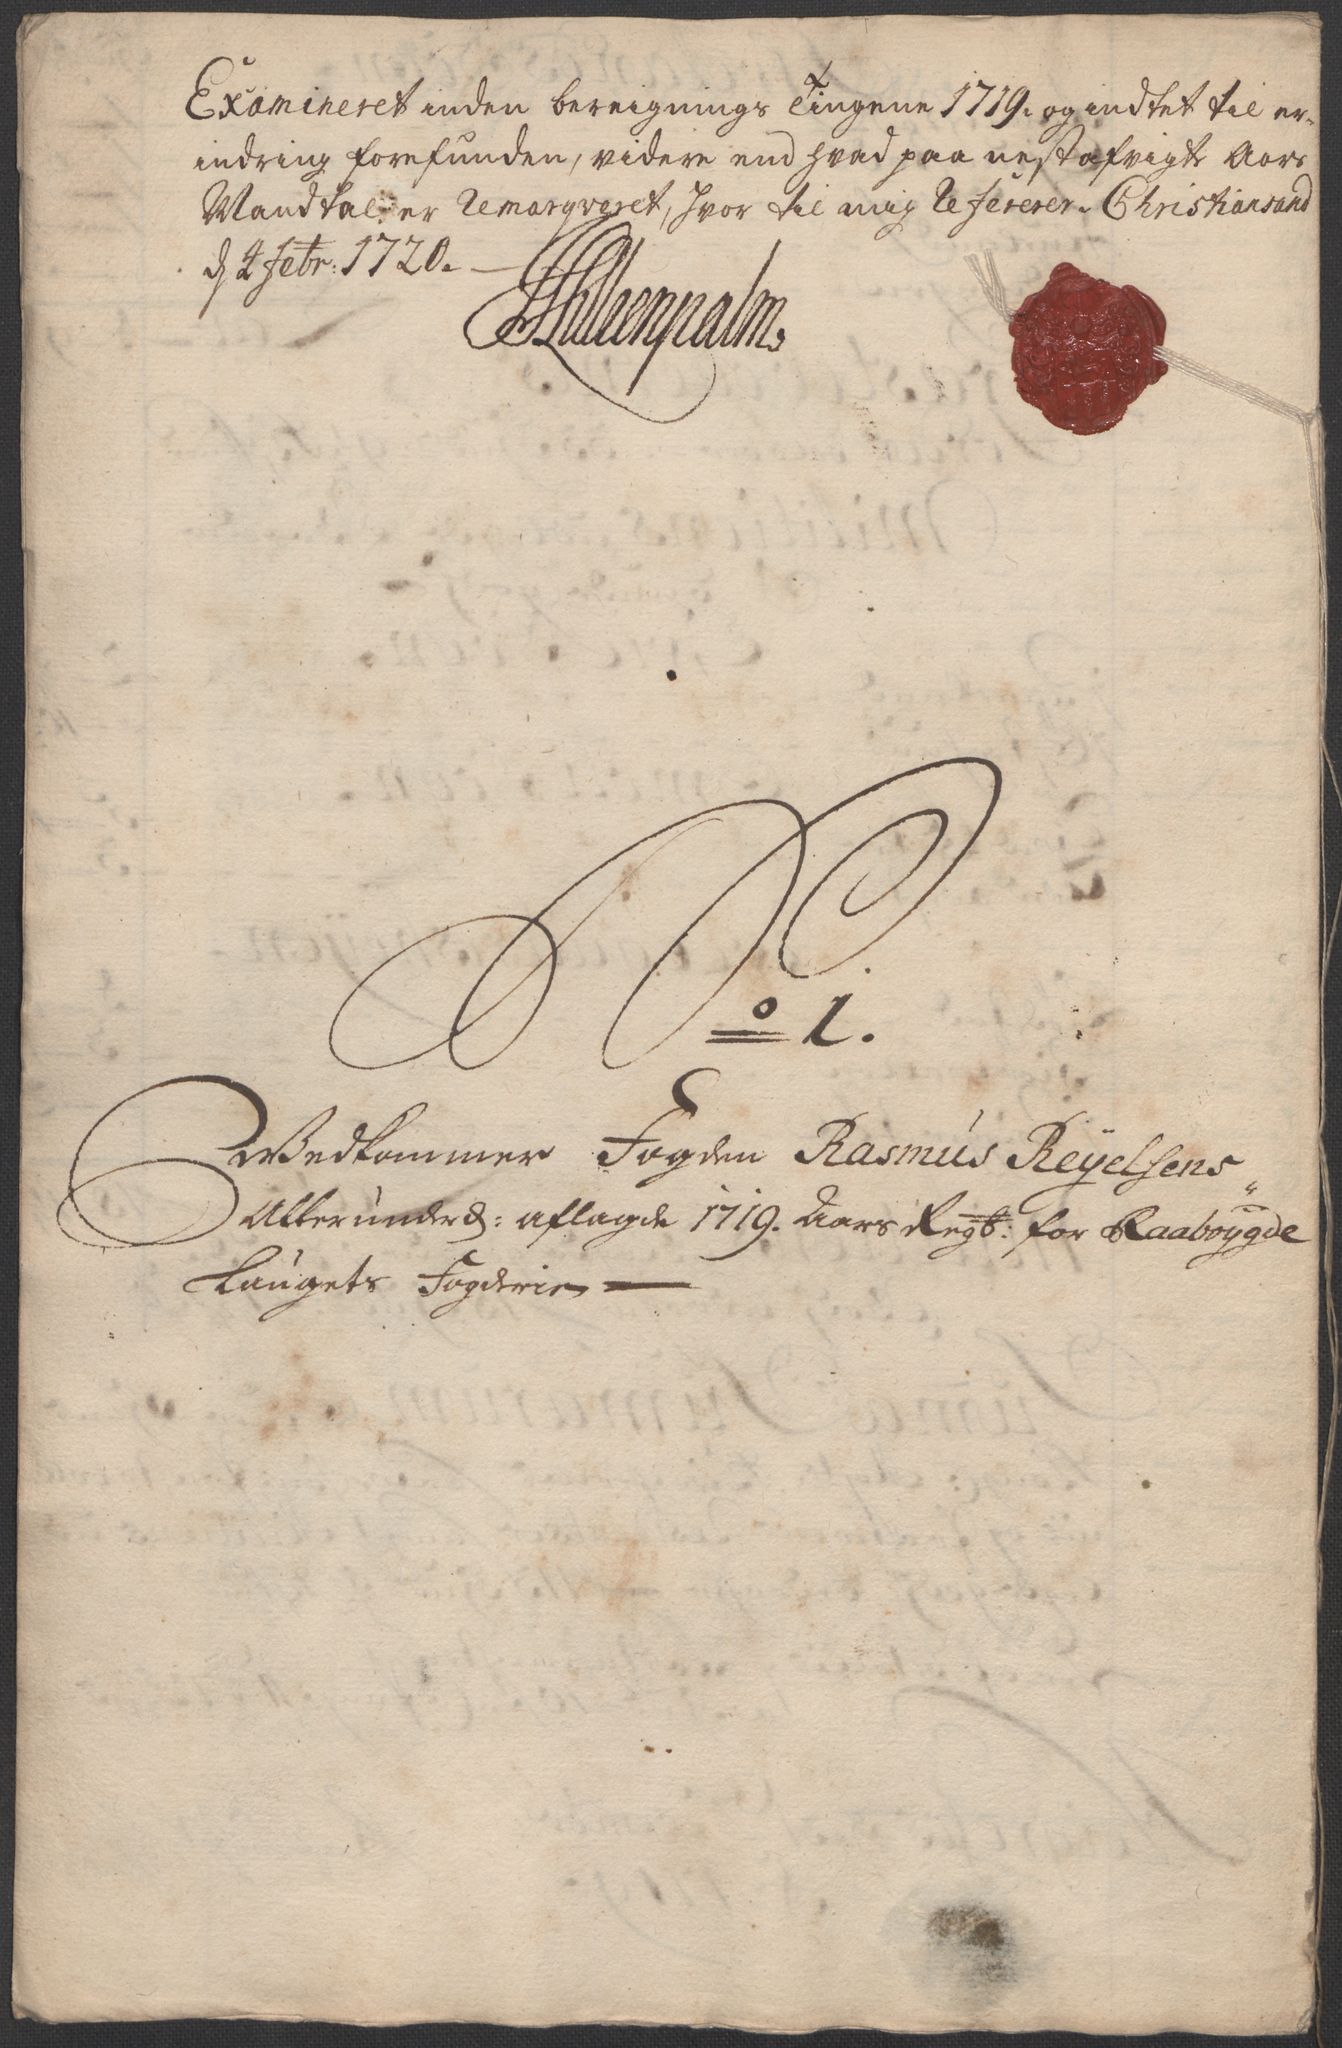 Examineret inden bereignings Tingene 1719. og indtet til er-
indring forefunden, videre end hvad paa nestafvigte Aars
Mandtaller er Remarqveret, hvor til mig Refererer. Christiansand
d 4 Febr: 1720.
Lillienpalm.
No 1.
Vedkommer Fogden Rasmus Reÿelsens
Allerunderd: aflagde 1719. Aars Regsk: for Raaboÿgde
Laugets Fogderie